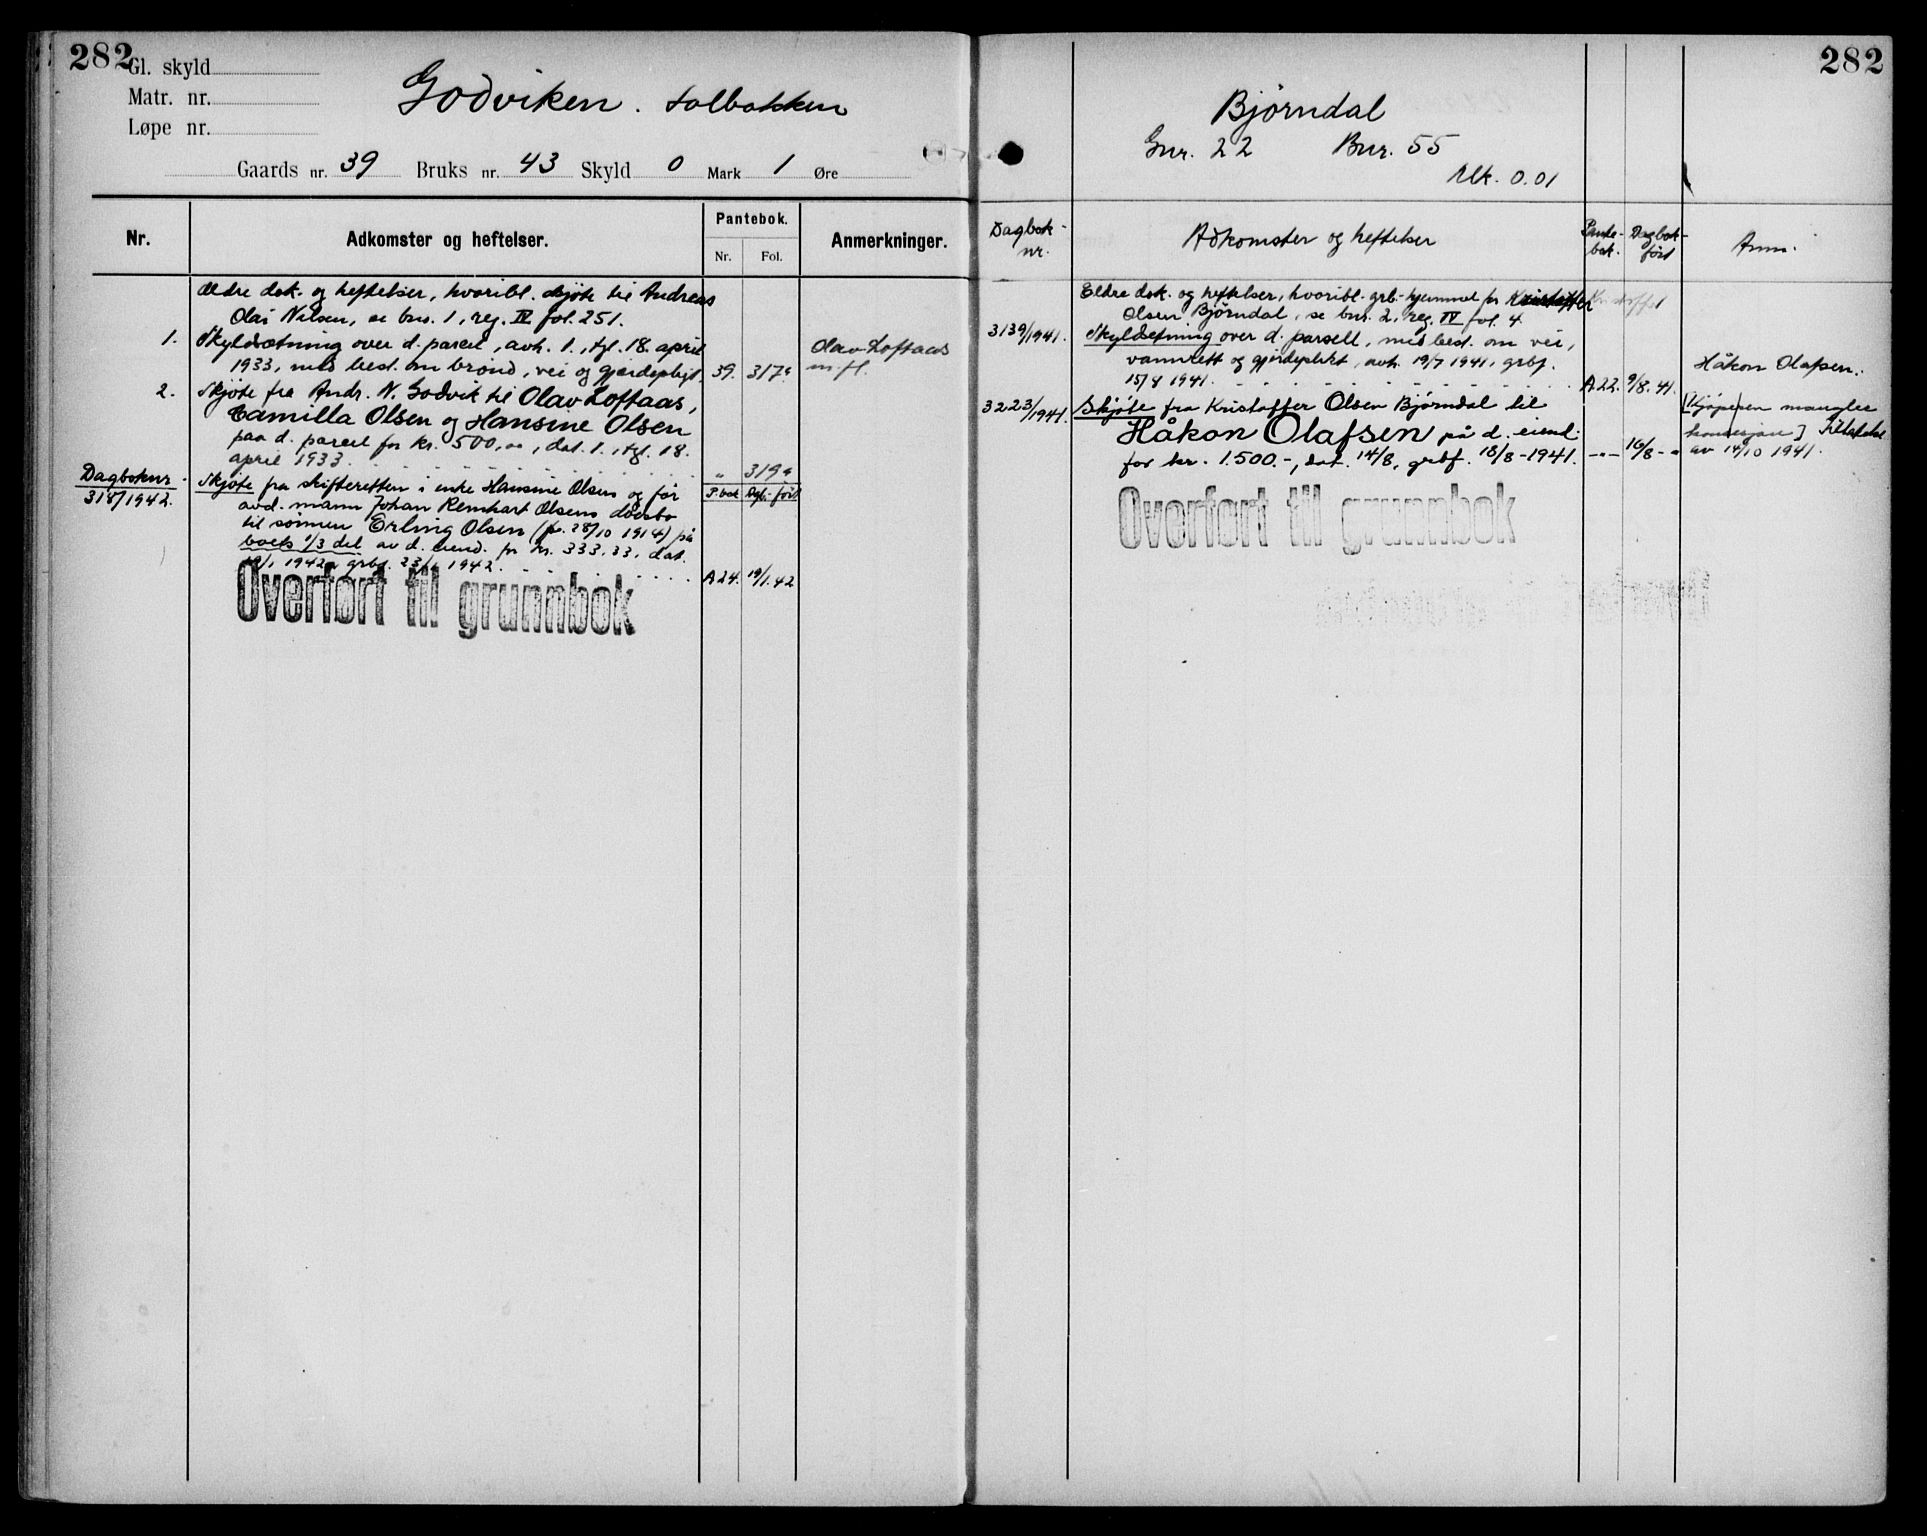 282
Gl. skyld
Matr. nr.
Løpe nr.
Godviken. Solbakken
Gaards nr. 39 Bruks nr. 43 Skyld 0 Mark 1 Øre
Nr. Adkomster og heftelser. Pantebok. Anmerkninger.
Nr. Fol.
Ældre dok. og heftelser, hvoribl. skjøte til Andreas
Olai Nilsen, se bnr. 1, reg. IV fol. 251.
1. Skyldsætning over d. parcel, avh. 1., tgl. 18. april
1933, med best. om brønd, vei og gjærdepligt. 39. 317a
Olav Loftaas
m. fl.
2. Skjøte fra Andr. N. Godvik til Olav Loftaas,
Camilla Olsen og Hansine Olsen
paa d. parcel for kr. 500,00, dat. 1., tgl. 18.
april 1933. " 319a
Dagboknr.
318/1942.
P.bok Dgb. ført
Skjøte fra skifteretten i enke Hansine Olsens og før
avd. mann Johan Reinhart Olsens dødsbo
til sønnen Erling Olsen (f. 28/10 1914) på
boets 1/3 del av d. eiend. for kr. 333,33, dat.
19/1 1942, grbf. 23/1 1942. A 24. 19/1.42
Overført til grunnbok
282
Bjørndal
Gnr. 22 Bnr. 55
Mk. 0.01
Dagbok-
nr.
Adkomster og heftelser
Pante-
bok.
Dagbok-
ført
Anm.
Eldre dok. og heftelser, hvoribl. grb.-hjemmel for Kristoffer Kristoffer
Olsen Bjørndal, se bnr. 2, reg. IV fol. 4.
3139/1941. Skyldsetning over d. parsell, med best. om vei,
vannrett og gjerdeplikt, avh. 19/7 1941, grbf.
15/8 1941. A 22. 9/8.41.
Håkon Olafsen.
3223/1941. Skjøte fra Kristoffer Olsen Bjørndal til
Håkon Olafsen på d. eiend.
for kr. 1.500.-, dat. 14/8, grbf. 18/8-1941. -"- 16/8-"
[Kjøperen mangler
konsesjon]
av 14/10 1941.
Overført til grunnbok